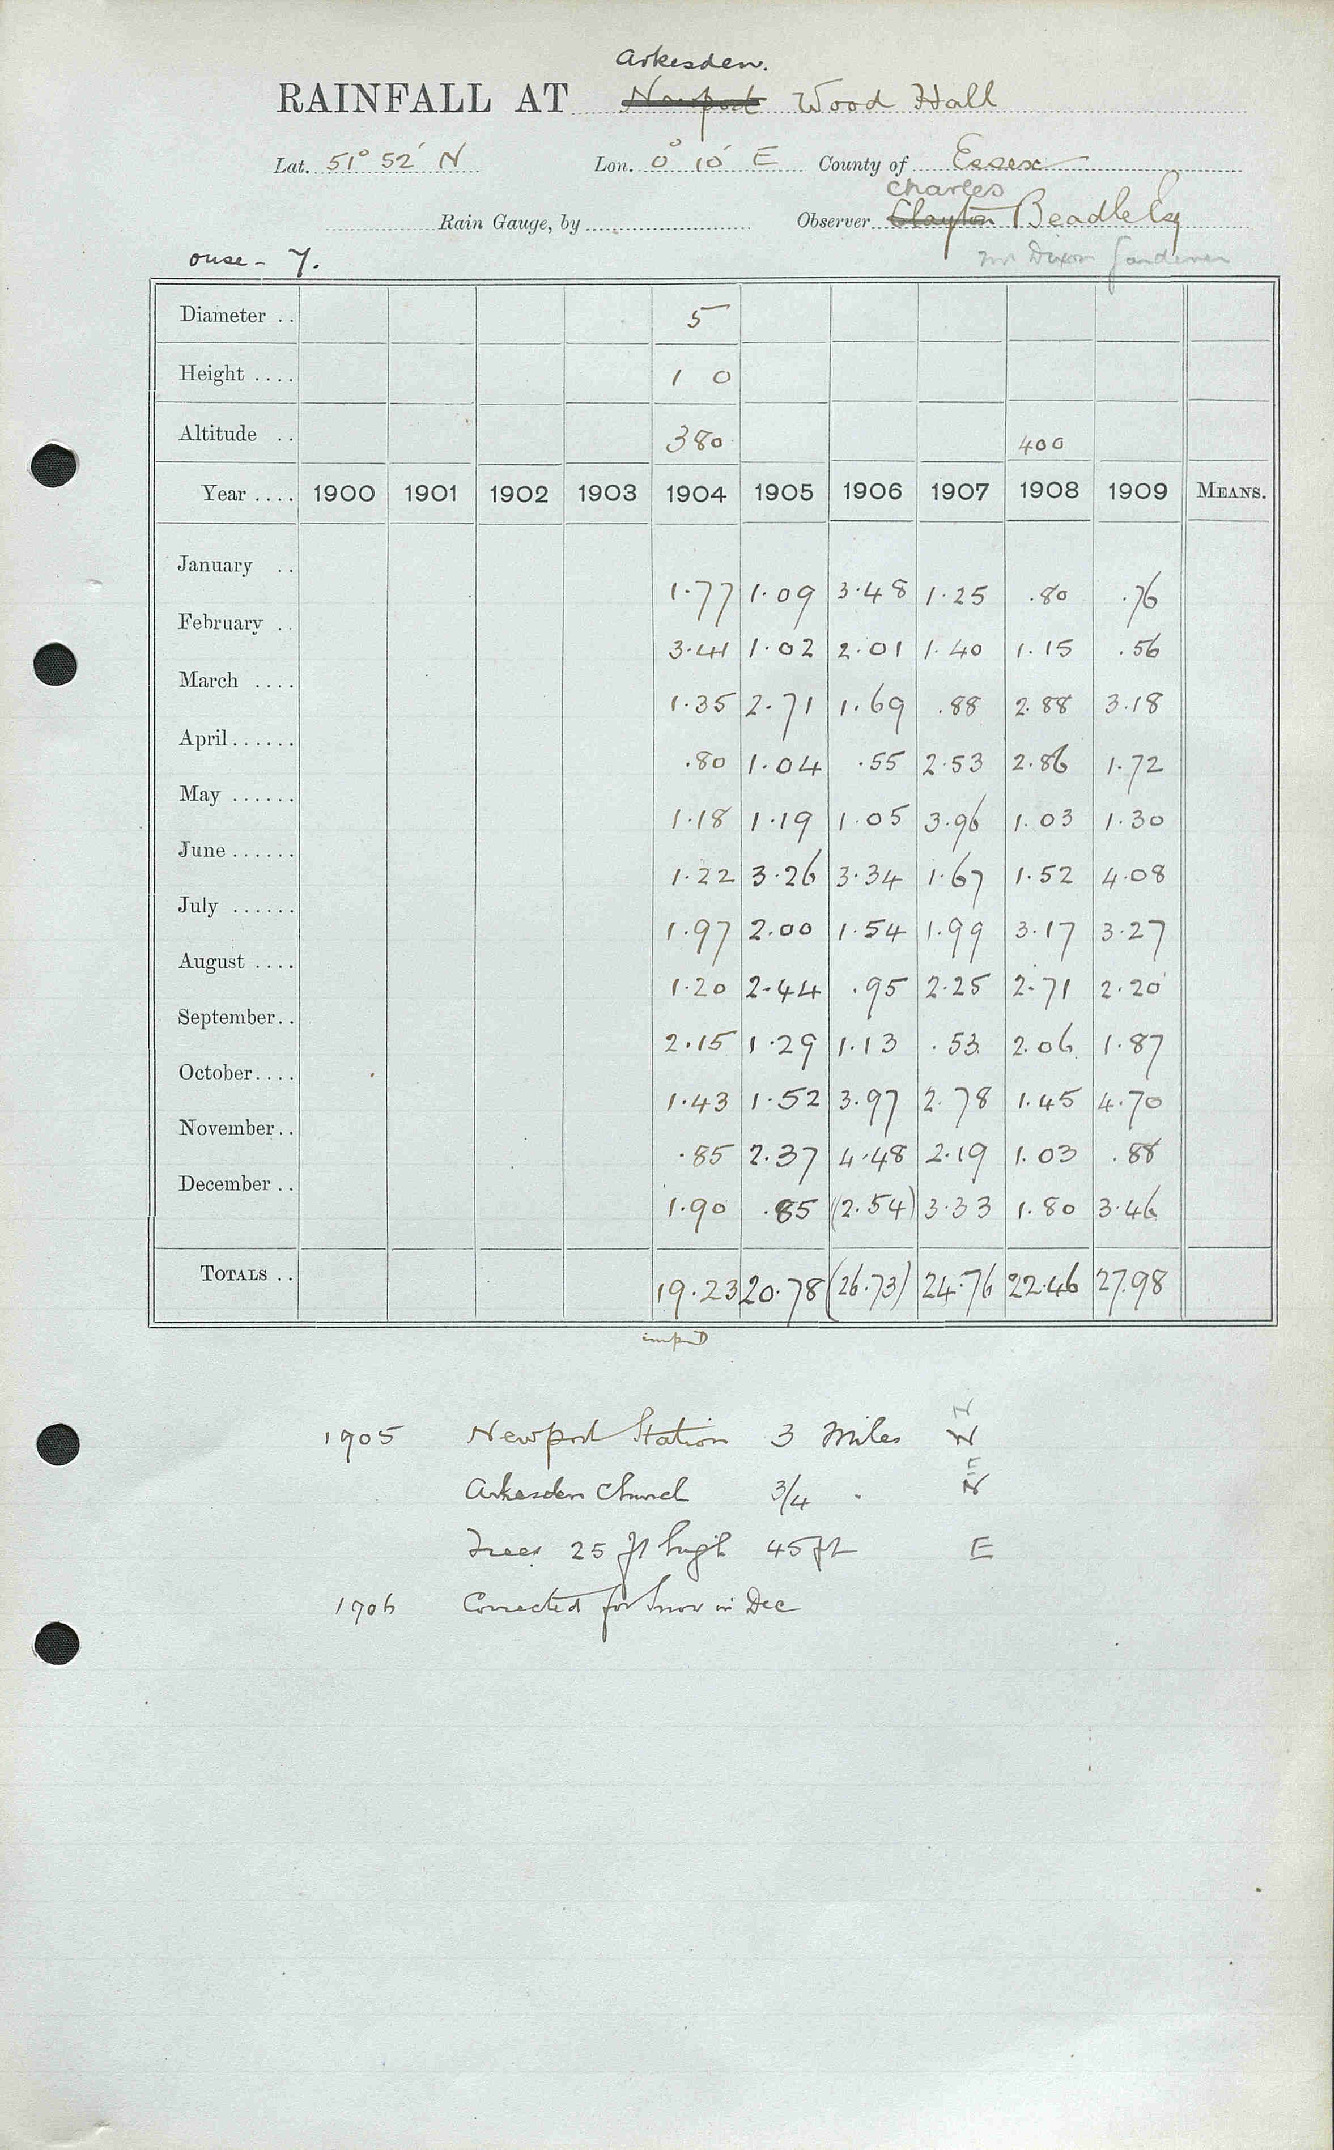 Arkesden.
RAINFALL AT Newport Wood Hall
Lat. 51° 52' N Lon. 0° 10' E County of Essex
Charles
Rain Gauge, by Observer Clayton Beadle Esq
Ouse - 7. Mr Dixon Gardener
Diameter .. 5
Height .... 1 0
Altitude .. 380 400
Year .... 1900 1901 1902 1903 1904 1905 1906 1907 1908 1909 MEANS.
January .. 1.77 1.09 3.48 1.25 .80 .76
February .. 3.41 1.02 2.01 1.40 1.15 .56
March .... 1.35 2.71 1.69 .88 2.88 3.18
April ...... .80 1.04 .55 2.53 2.86 1.72
May ...... 1.18 1.19 1.05 3.96 1.03 1.30
June ...... 1.22 3.26 3.34 1.67 1.52 4.08
July ...... 1.97 2.00 1.54 1.99 3.17 3.27
August .... 1.20 2.44 .95 2.25 2.71 2.20
September.. 2.15 1.29 1.13 .53 2.06 1.87
October.... 1.43 1.52 3.97 2.78 1.45 4.70
November.. .85 2.37 4.48 2.19 1.03 .88
December .. 1.90 .85 (2.54) 3.33 1.80 3.46
TOTALS .. 19.23 20.78 (26.73) 24.76 22.46 27.98
1905 Newport Station 3 Miles N
Arkesden Church 3/4 " N
Trees 25 ft high 45 ft E
1906 Corrected for Snow in Dec